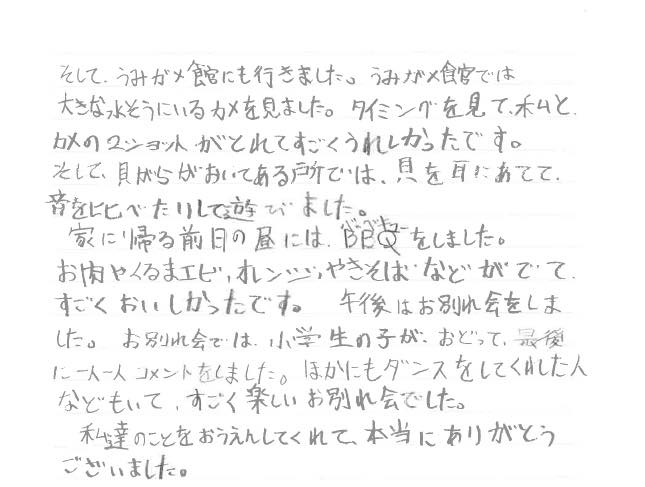 そして、うみガメ館にも行きました。うみガメ館では
大きな水そうにいるカメを見ました。タイミングを見て、私と
カメの2ショットがとれてすごくうれしかったです。
そして、貝がらがおいてある所では、貝を耳にあてて、
音を比べたりして遊びました。
家に帰る前日の昼には、BBQをしました。
バーベキュー
お肉やくるまエビ、オレンジ、やきそばなどがでて、
すごくおいしかったです。 午後はお別れ会をしま
した。お別れ会では、小学生の子が、おどって、最後
に一人一人コメントをしました。ほかにもダンスをしてくれた人
などもいて、すごく楽しいお別れ会でした。
私達のことをおうえんしてくれて、本当にありがとう
ございました。